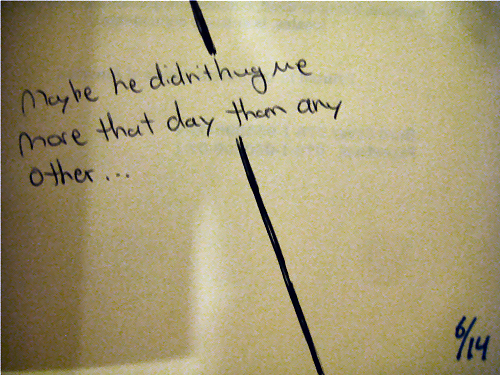 Maybe he didn't hug me
more that day than any
other...
6/14